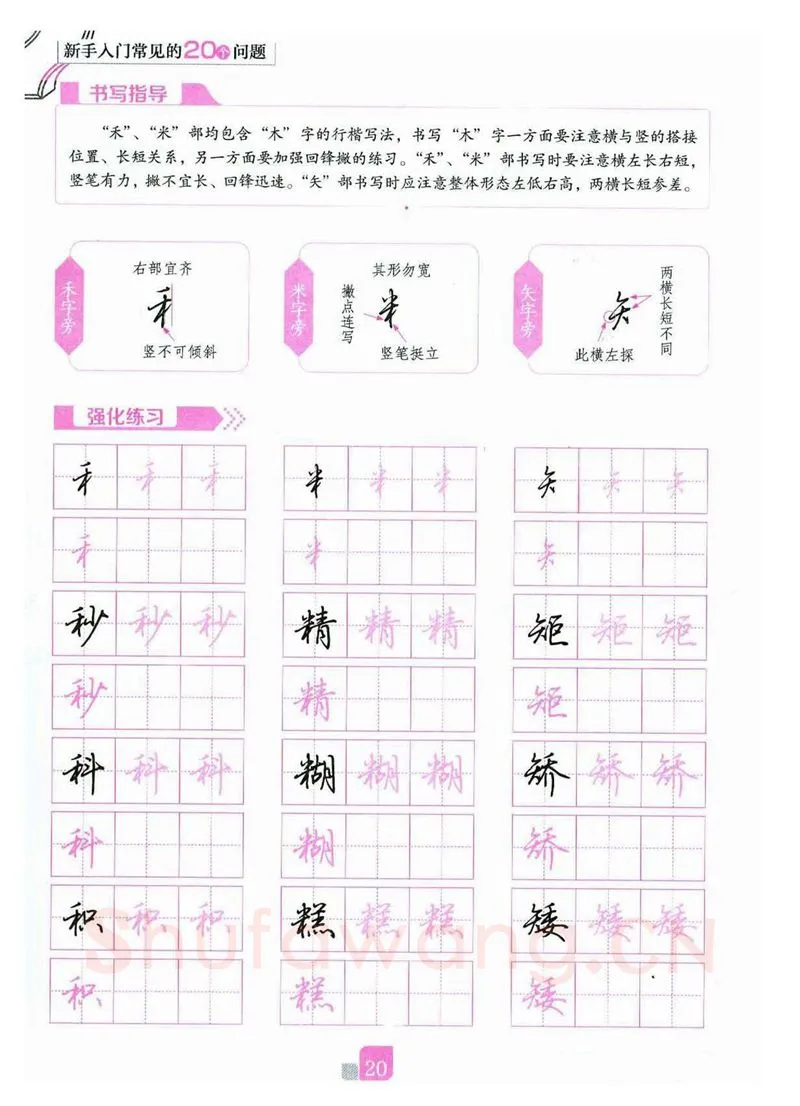 新手入门常见的20个问题
书写指导
“禾”、“米”部均包含“木”字的行楷写法，书写“木”字一方面要注意横与竖的搭接
位置、长短关系，另一方面要加强回锋撇的练习。“禾”、“米”部书写时要注意横左长右短，
竖笔有力，撇不宜长、回锋迅速。“矢”部书写时应注意整体形态左低右高，两横长短参差。
禾字旁
右部宜齐
禾
竖不可倾斜
米字旁
其形勿宽
撇点连写
米
竖笔挺立
矢字旁
两横长短不同
矢
此横左探
强化练习
禾 禾 禾 米 米 米 矢 矢 矢
禾 米 矢
秒 秒 秒 精 精 精 矩 矩 矩
秒 精 矩
科 科 科 糊 糊 糊 矫 矫 矫
科 糊 矫
积 积 积 糕 糕 糕 矮 矮 矮
积 糕 矮
Shufawang.CN
20